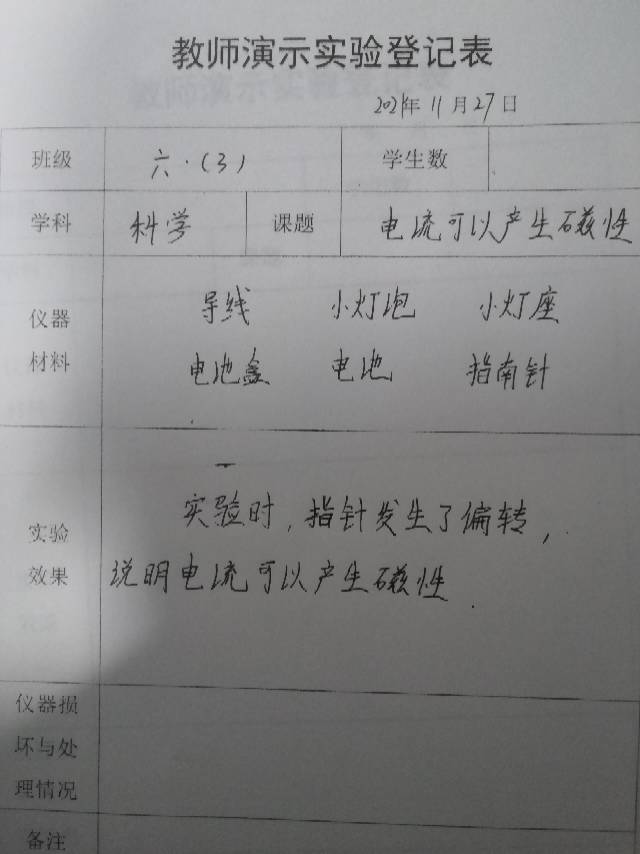 教师演示实验登记表
2021年11月27日
班级 六.(3) 学生数
学科 科学 课题 电流可以产生磁性
仪器材料
导线 小灯泡 小灯座
电池盒 电池 指南针
实验效果
实验时,指针发生了偏转,
说明电流可以产生磁性.
仪器损坏与处理情况
备注